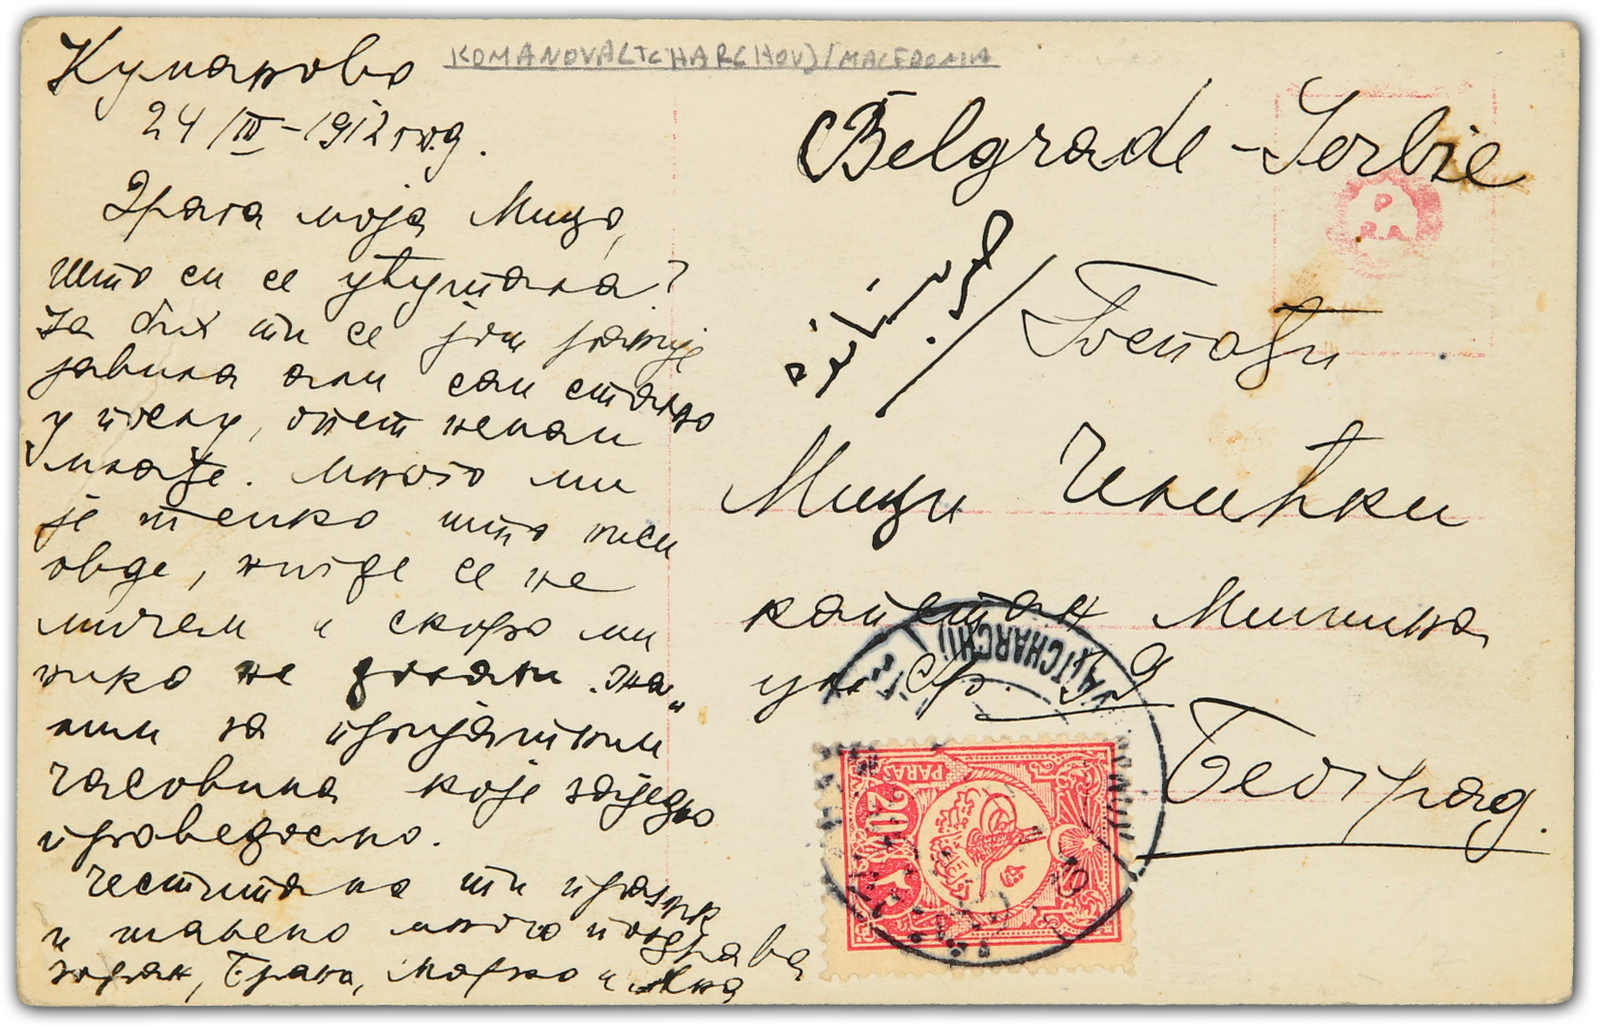 Куманово
24/III-1912 год.
KOMANOVA(TCHARCHOU)/MACEDONIA
Драга моја Мицо,
што си се ућутала?
Ја бих ти се још раније
јавила али сам стално
у послу, опет немам
млађе. Много ми
је тешко што ниси
овде, нигде се не
мичем и скоро ми
нико не долази. Жа„
лим за пријатним
часовима које заједно
проведосмо.
Честитамо ти празник
и шаљемо много поздрава
Зоран, Брана, Марко и Ана
Belgrade-Serbie
Госпођи
Мици Илићки
капетан Мишина
ул. бр. 59
Београд.
P
R.A
TCHARCHI)
20
PARAS
٢٠